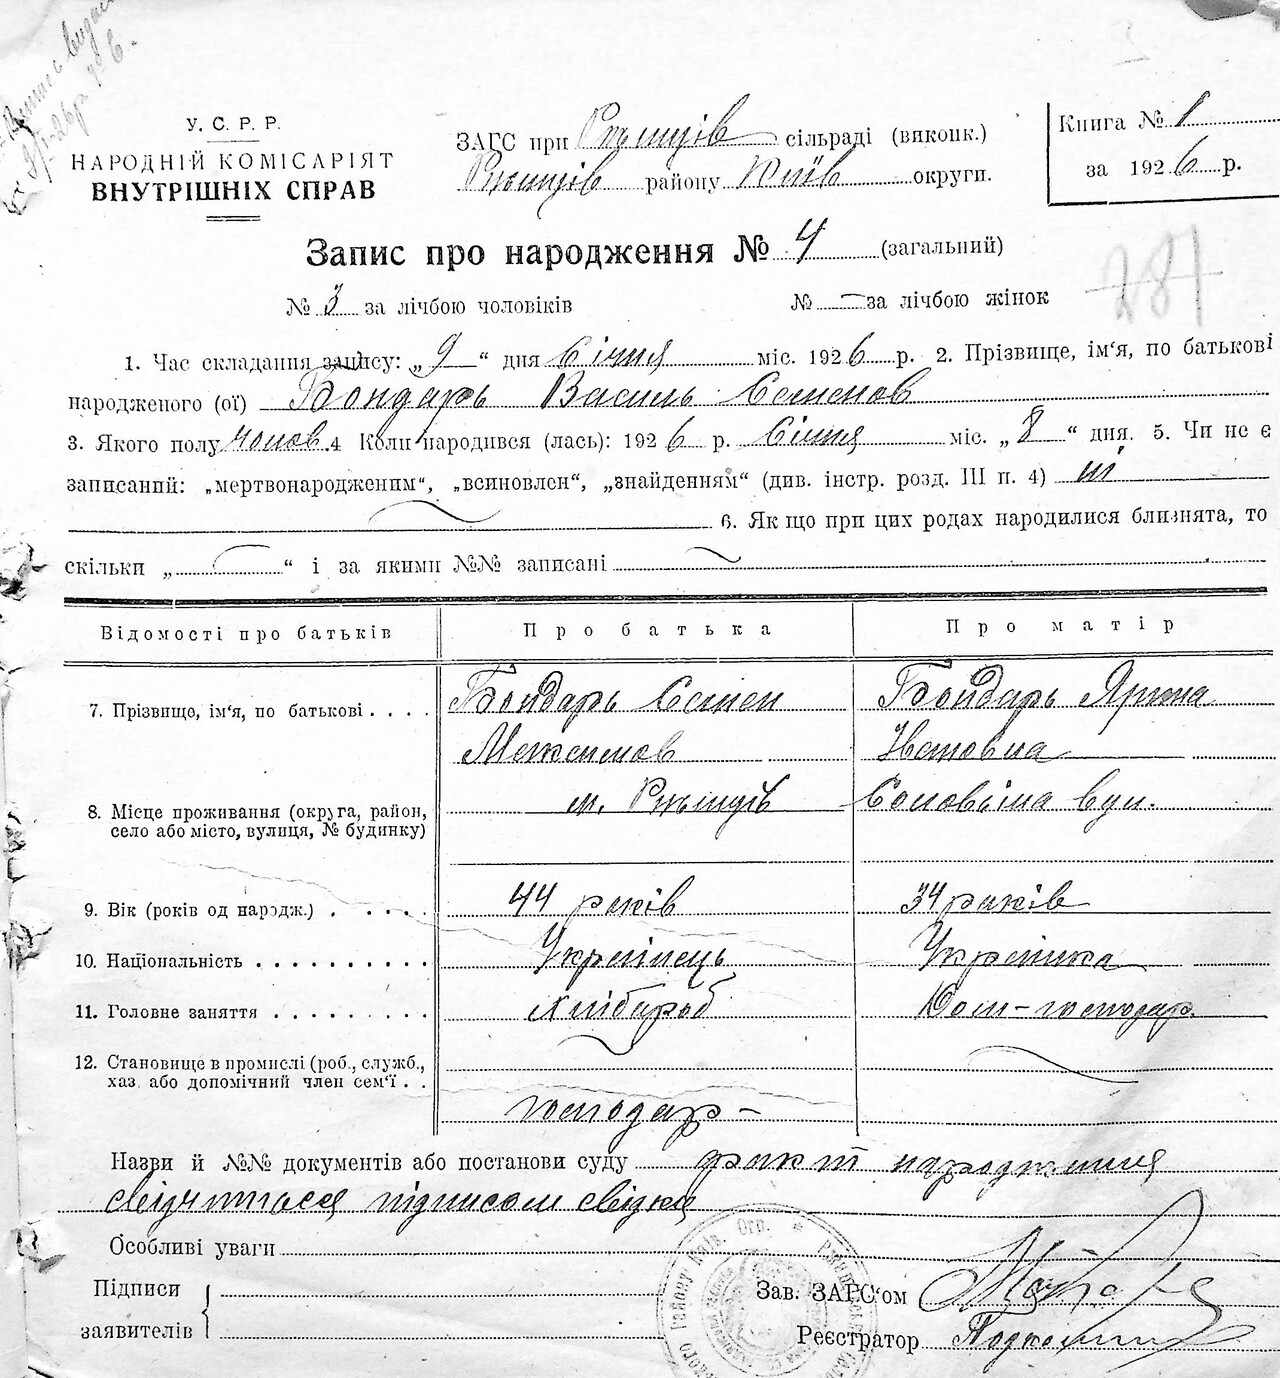 У. С. Р. Р.
НАРОДНІЙ КОМІСАРІЯТ
ВНУТРІШНІХ СПРАВ
ЗАГС при Ржищів сільраді (виконк.)
Ржищів району Київ округи.
Книга № 1
за 1926 р.
Запис про народження № 4 (загальний)
№ 3 за лічбою чоловіків № — за лічбою жінок
287
1. Час складання запису: „9“ дня Січня міс. 1926 р. 2. Прізвище, ім'я, по батькові
народженого (ої) Бондарь Василь Семенов
3. Якого полу чолов. 4 Коли народився (лась): 1926 р. Січня міс. „8“ дня. 5. Чи не є
записаний: „мертвонародженим“, „всиновлен“, „знайденням“ (див. інстр. розд. III п. 4) ні
6. Якщо при цих родах народилися близнята, то
скільки „ “ і за якими №№ записані
Відомості про батьків Про батька Про матір
7. Прізвище, ім'я, по батькові Бондарь Семен Бондарь Ярина
Максимов
8. Місце проживання (округа, район, м. Ржищів вул.
село або місто, вулиця, № будинку)
9. Вік (років од народж.) 44 років 34 років
10. Національність Українець Українка
11. Головне заняття хлібороб Дом-господар.
12. Становище в промислі (роб., служб.,
хаз. або допомічний член сем'ї господар –
Назви й №№ документів або постанови суду факт народження
свідчиться підписом свідка
Особливі уваги
Підписи
заявителів
Зав. ЗАГС'ом
Реєстратор